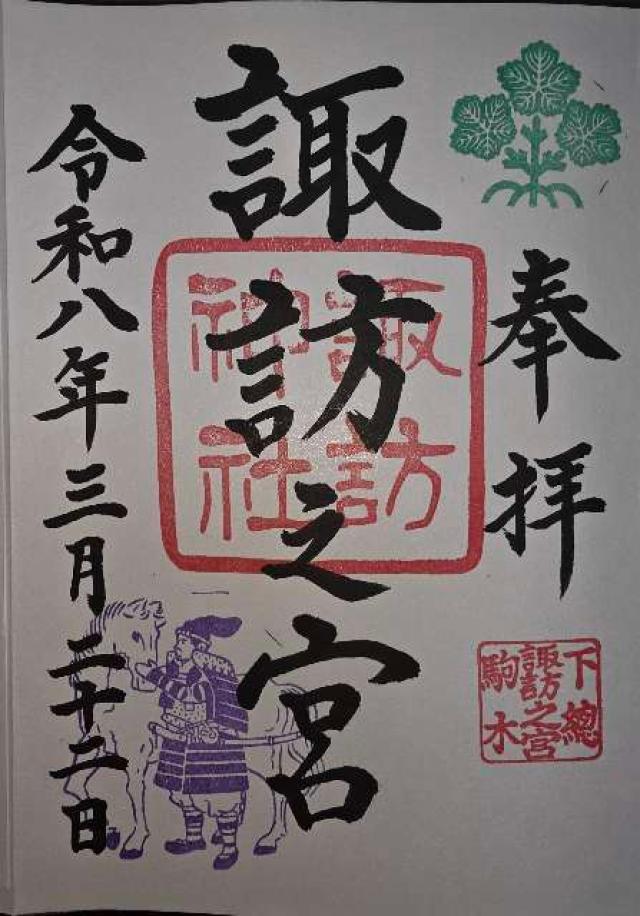 奉拝
下總
諏訪之宮
駒木
諏訪之宮
諏訪
神社
令和八年三月二十二日